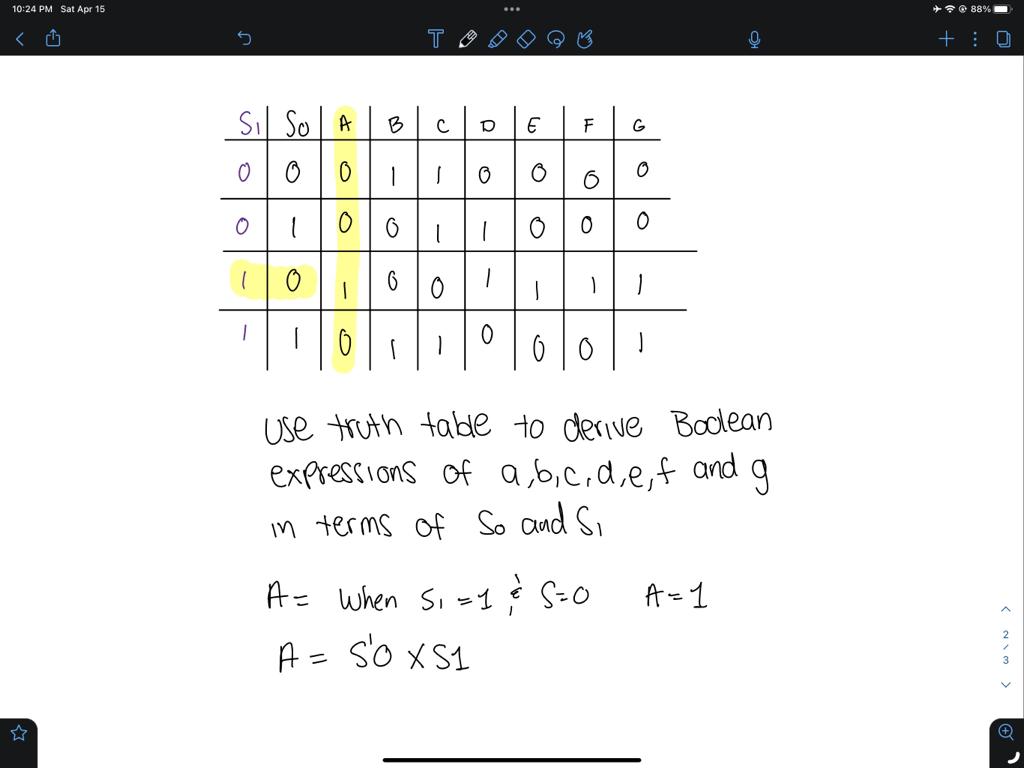 10:24 PM Sat Apr 15
88%
T
S1 S0 A B C D E F G
0 0 0 1 1 0 0 0 0
0 1 0 0 1 1 0 0 0
1 0 1 0 0 1 1 1 1
1 1 0 1 1 0 0 0 1
use truth table to derive Boolean
expressions of a,b,c,d,e,f and g
in terms of S0 and S1
A= When S1 =1 & S=0 A=1
A = S'0 X S1
2
/
3